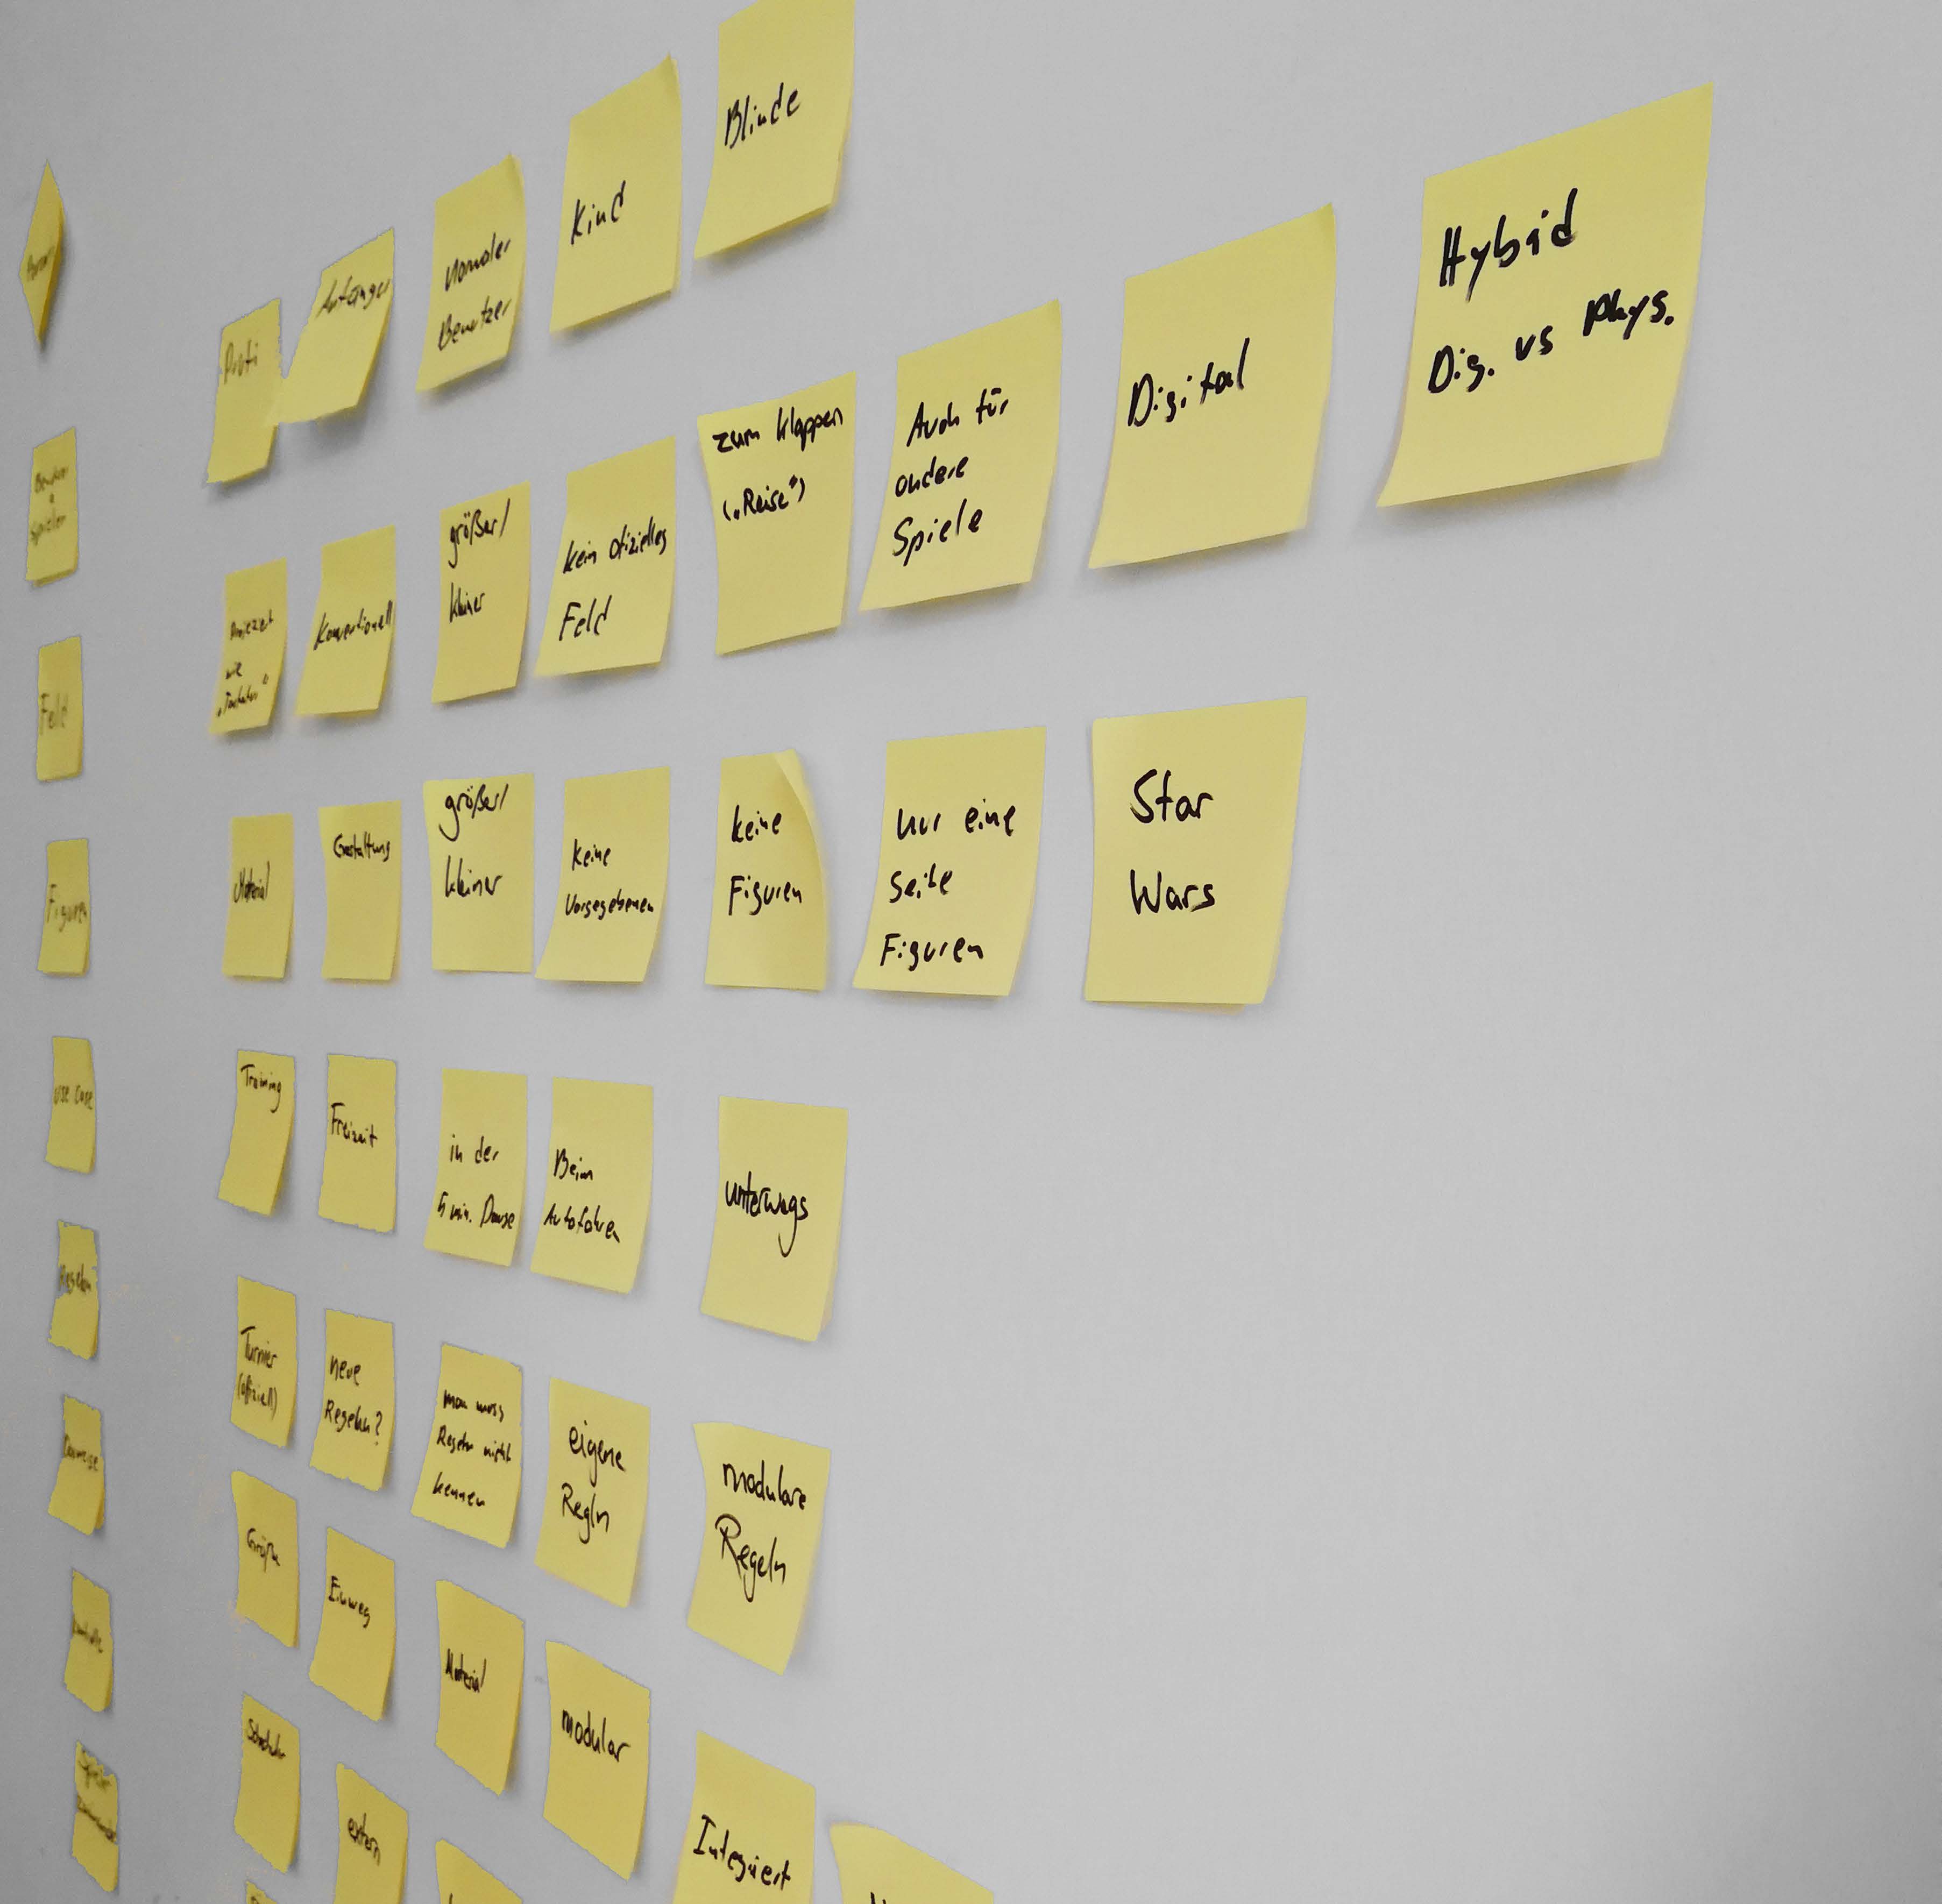 Profi
Anfänger
Normaler
Benutzer
Kind
Blinde
Benutzer
Spieler
Feld
wie
Konventionell
größer/
kleiner
kein ofizielles
Feld
zum klappen
(„Reise“)
Auch für
andere
Spiele
Digital
Hybrid
Dig. vs phys.
Figuren
Material
Gestaltung
größer/
kleiner
keine
Vorgegebenen
keine
Figuren
nur eine
Seite
Figuren
Star
Wars
use case
Training
Freizeit
in der
5 min. Pause
Beim
Autofahren
unterwegs
Regeln
Turnier
(offiziell)
neue
Regeln?
man muss
Regeln nicht
kennen
eigene
Regln
modulare
Regeln
Bauweise
Größe
Einweg
Material
modular
Schachuhr
extern
Integriert